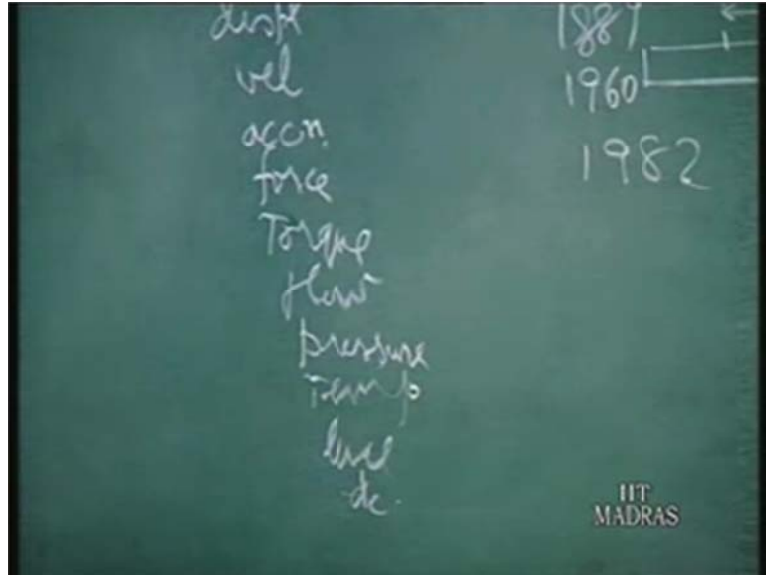 displ
vel
accn.
force
Torque
flow
pressure
Temp
level
etc.
1889
1960
1982
IIT
MADRAS